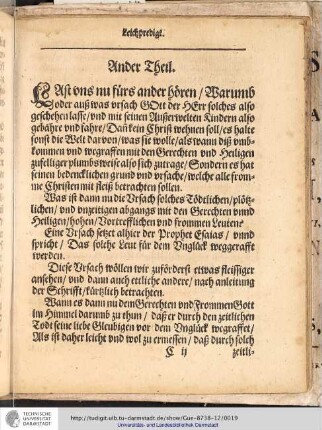 Leichpredigt.
Ander Theil.
LAst vns nu fürs ander hören / Warumb
oder auß was vrsach GOtt der HErr solches also
geschehen lasse / vnd mit seinen Außerwelten Kindern also
gebahre vnd fahre / Dañ kein Christ wehnen soll / es halte
sonst die Welt darvon / was sie wolle / als wann diß vmb-
kommen vnd wegraffen mit den Gerechten vnd Heiligen
zufelliger plumbsweise also sich zutrage / Sondern es hat
seinen bedencklichen grund vnd vrsache / welche alle from-
me Christen mit fleiß betrachten sollen.
Was ist dann nu die Vrsach solches Tödtlichen / plötz-
lichen / vnd vnzeitigen abgangs mit den Gerechten vnnd
Heiligen / hohen / Vortrefflichen vnd frommen Leuten?
Eine Vrsach setzet alhier der Prophet Esaias / vnnd
spricht / Das solche Leut für dem Vnglück weggerafft
werden.
Diese Vrsach wöllen wir zuförderst etwas fleissiger
ansehen / vnd dann auch ettliche andere / nach anleitung
der Schrifft / kürtzlich betrachten.
Wann es dann nu dem Gerechten vnd Frommen Gott
im Himmel darumb zu thun / daß er durch den zeitlichen
Todt seine liebe Gleubigen vor dem Vnglück wegraffet /
Als ist daher leicht vnd wol zu ermessen / daß durch solch
C ij zeitli-
TECHNISCHE
UNIVERSITÄT
DARMSTADT
http://tudigit.ulb.tu-darmstadt.de/show/Gue-8738-12/0019
Universitäts- und Landesbibliothek Darmstadt